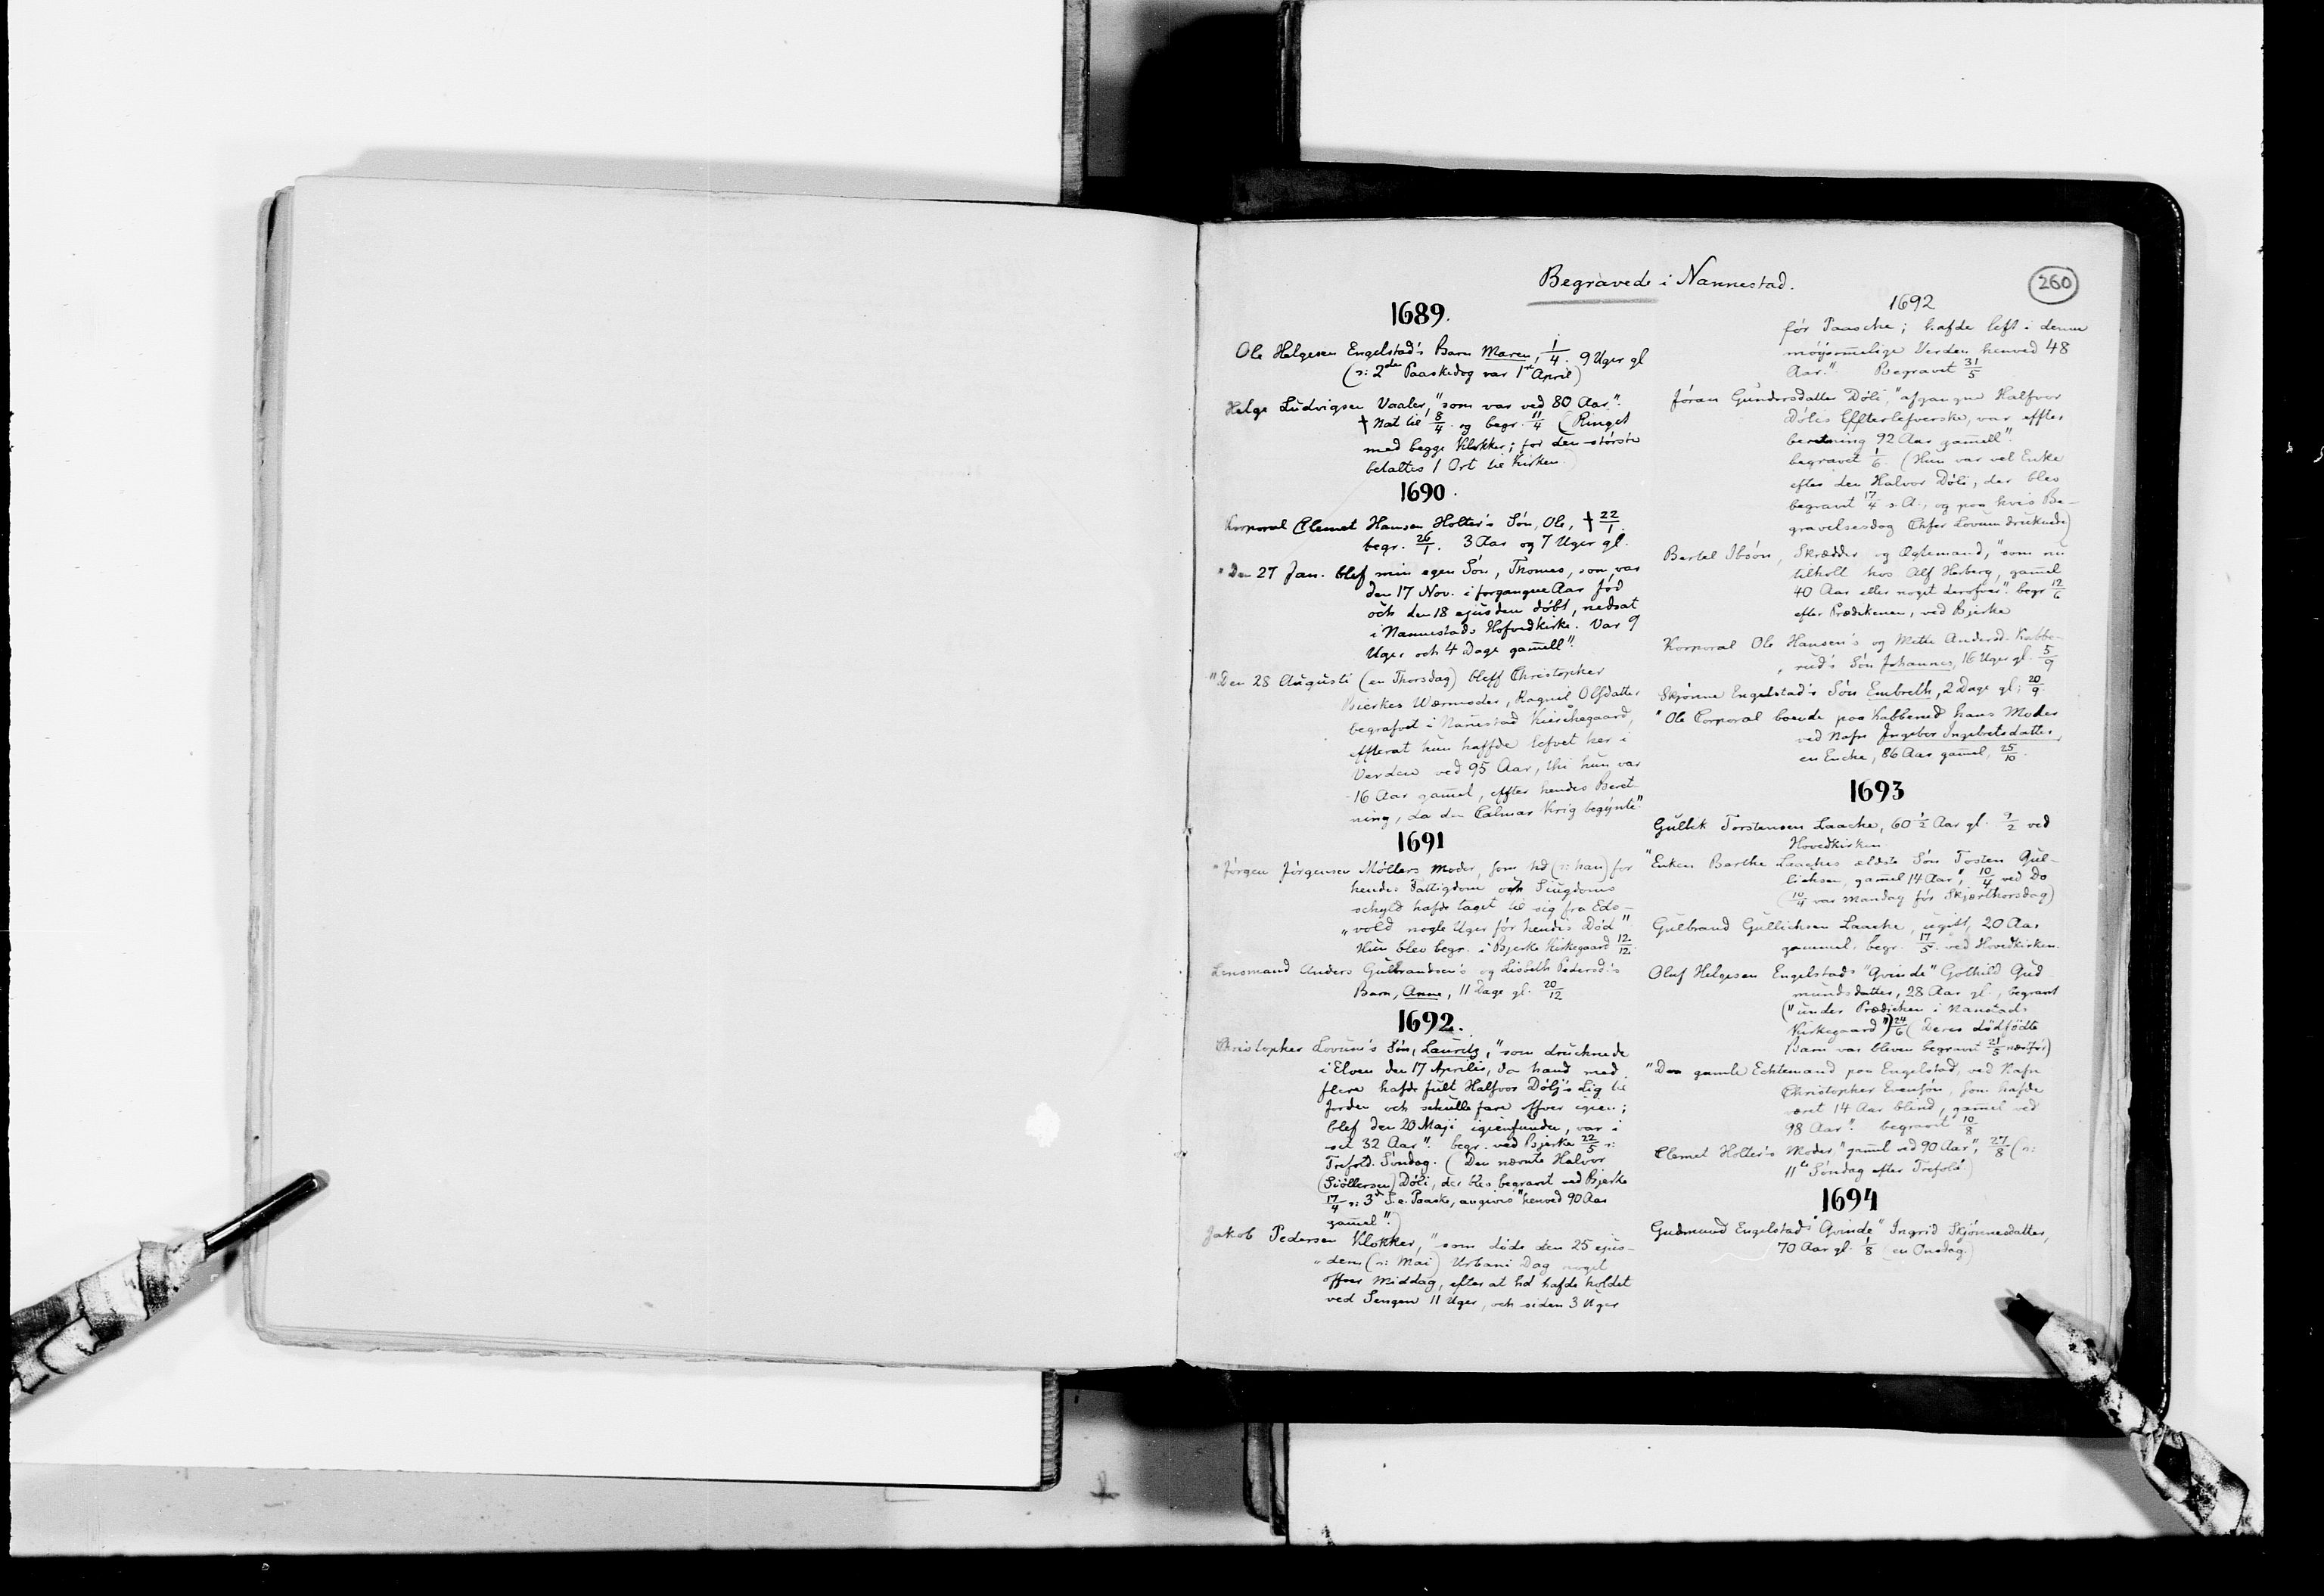 Begravede i Nannestad.
260
1689.
Ole Helgesen Engelstad's Barn Maren, 1/4. 9 Uger gl
(ɔ: 2den Paaskedag var 1ste April)
Helge Ludvigsen Vaaler, "som var ved 80 Aar".
† Nat til 8/4 og begr. 11/4 (Ringet
med begge Klokker; for den største
betaltes 1 Ort til Kirken.)
1690.
Korporal Clemet Hansen Holter's Søn, Ole, † 22/1.
begr. 26/1. 3 Aar og 7 Uger gl.
"Den 27 Jan. blef min egen Søn, Thomes, som var
den 17 Nov. i forgangne Aar fød
och den 18 ejusdem døbt, nedsat
i Nannestads Hofvedkirke. Var 9
Uger och 4 Dage gam̄ell".
"Den 28 Augusti (en Thorsdag) bleff Christopher
Bierkes Wærmoder, Ragnil Olfsdatter
begrafvet i Nan̄estad Kierchegaard,
efterat hun haffde lefvet her i
Verden ved 95 Aar, thi hun var
16 Aar gam̄el, effter hendes Beret-
ning, da den Calmar Krig begynte".
1691
"Jørgen Jørgensen Møllers Moder, som hd (ɔ: han) for
hendes Fattigdom och Siugdoms
schyld hafde taget til sig fra Eds-
"vold nogle Uger før hendes Død"
Hun blev begr. i Bjerke Kirkegaard 12/12.
Lensmand Anders Gulbrandsen's og Lisbeth Pedersd's
Barn, Anne, 11 Dage gl. 20/12
1692.
Christopher Lovum's Søn, Lauritz, "som druchnede
i Elven den 17 Aprilis, da hand med
flere hafde fult Halfvor Dølj's Lig til
Jorden och schulle fare ofver igien;
blef den 20 Maji igienfunden, var i
sit 32 Aar". begr. ved Bjerke 22/5 ɔ:
Trefold. Søndag. (Den nævnte Halvor
(Siøllersen) Døli, der blev begravet ved Bjerke
17/4 ɔ: 3d S. e. Paaske, angives "henved 90 Aar
gam̄el".)
Jakob Pedersen Klokker, "som døde den 25 ejus-
"dem (ɔ: Mai) Urbani Dag noget
offver Middag, efter at hd hafde holdet
ved Sengen 11 Uger, och siden 3 Uger
1692
før Paasche; hafde left i denne
møysom̄elige Verden henved 48
Aar". Begravet 31/5
Jøran Gundersdatter Døli, "afgangne Halfvor
Dølis Effterlefverske, var effter
beretning 92 Aar gam̄ell".
begravet 1/6. (Hun var vel Enke
efter den Halvor Døli, der blev
begravet 17/4 s. A., og paa hvis Be-
gravelsesdag Chfer Lovum druknede)
Bertel Ibsøn, Skrædder og Ægtemand, "som nu
tilholt hos Alf Herberg, gam̄el
40 Aar eller noget derofver". begr 12/6
efter Prædikenen, ved Bjerke
Korporal Ole Hansen's og Mette Andersd. Kabbe-
rud's Søn Johannes, 16 Uger gl. 5/9
Skjønne Engelstad's Søn Embreth, 2 Dage gl; 20/9.
"Ole Corporal boende paa Kabberud hans Moder
ved Nafn Ingebor Ingebretsdatter,
en Encke, 86 Aar gam̄el, 25/10.
1693
Gullik Torstensen Laache, 60 1/2 Aar gl. 9/2 ved
Hovedkirken
"Enken Barthe Laaches ældste Søn Tosten Gul-
lichsen, gam̄el 14 Aar", 10/4 ved Do
(10/4 var Mandag før Skjærthorsdag)
Gulbrand Gullichsen Laache, ugift, 20 Aar
gammel. begr. 17/5. ved Hovedkirken.
Oluf Helgesen Engelstads "Qvinde" Gothild Gud
mundsdatter, 28 Aar gl., begravet
("under Prædichen i Nanstads
Kirkegaard") 24/6 (Deres dødfødte
Barn var bleven begravet 21/5 næstfør)
"Den gamle Echtemand paa Engelstad, ved Nafn
Christopher Evensøn, som hafde
været 14 Aar blind, gam̄el ved
98 Aar". begravet 10/8
Clemet Holter's Moder, "gam̄el ved 90 Aar", 27/8 (ɔ:
11te Søndag efter Trefold.)
1694
Gudmund Engelstads "Qvinde" Ingrid Skjønnesdatter,
70 Aar gl. 1/8 (en Onsdag.)